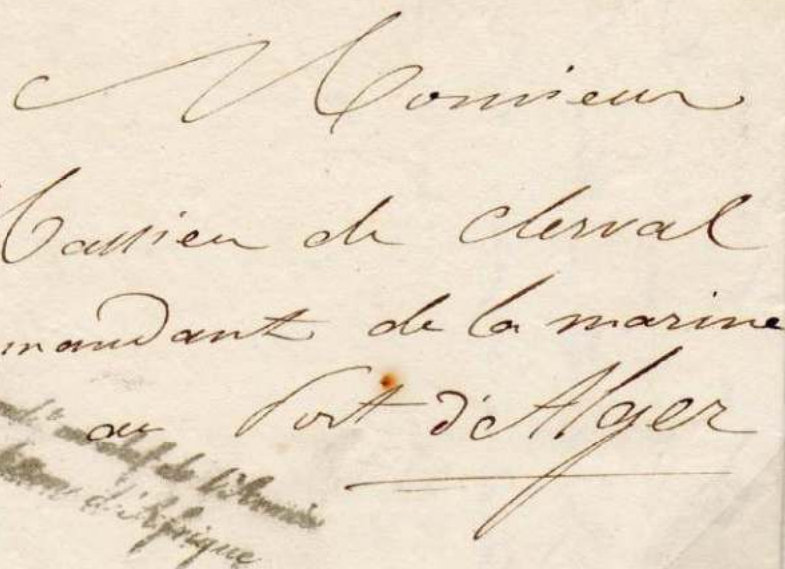 Monsieur
Massieu de Clerval
mandant de la marine
au Port d'Alger
de l'Armée
d'Afrique